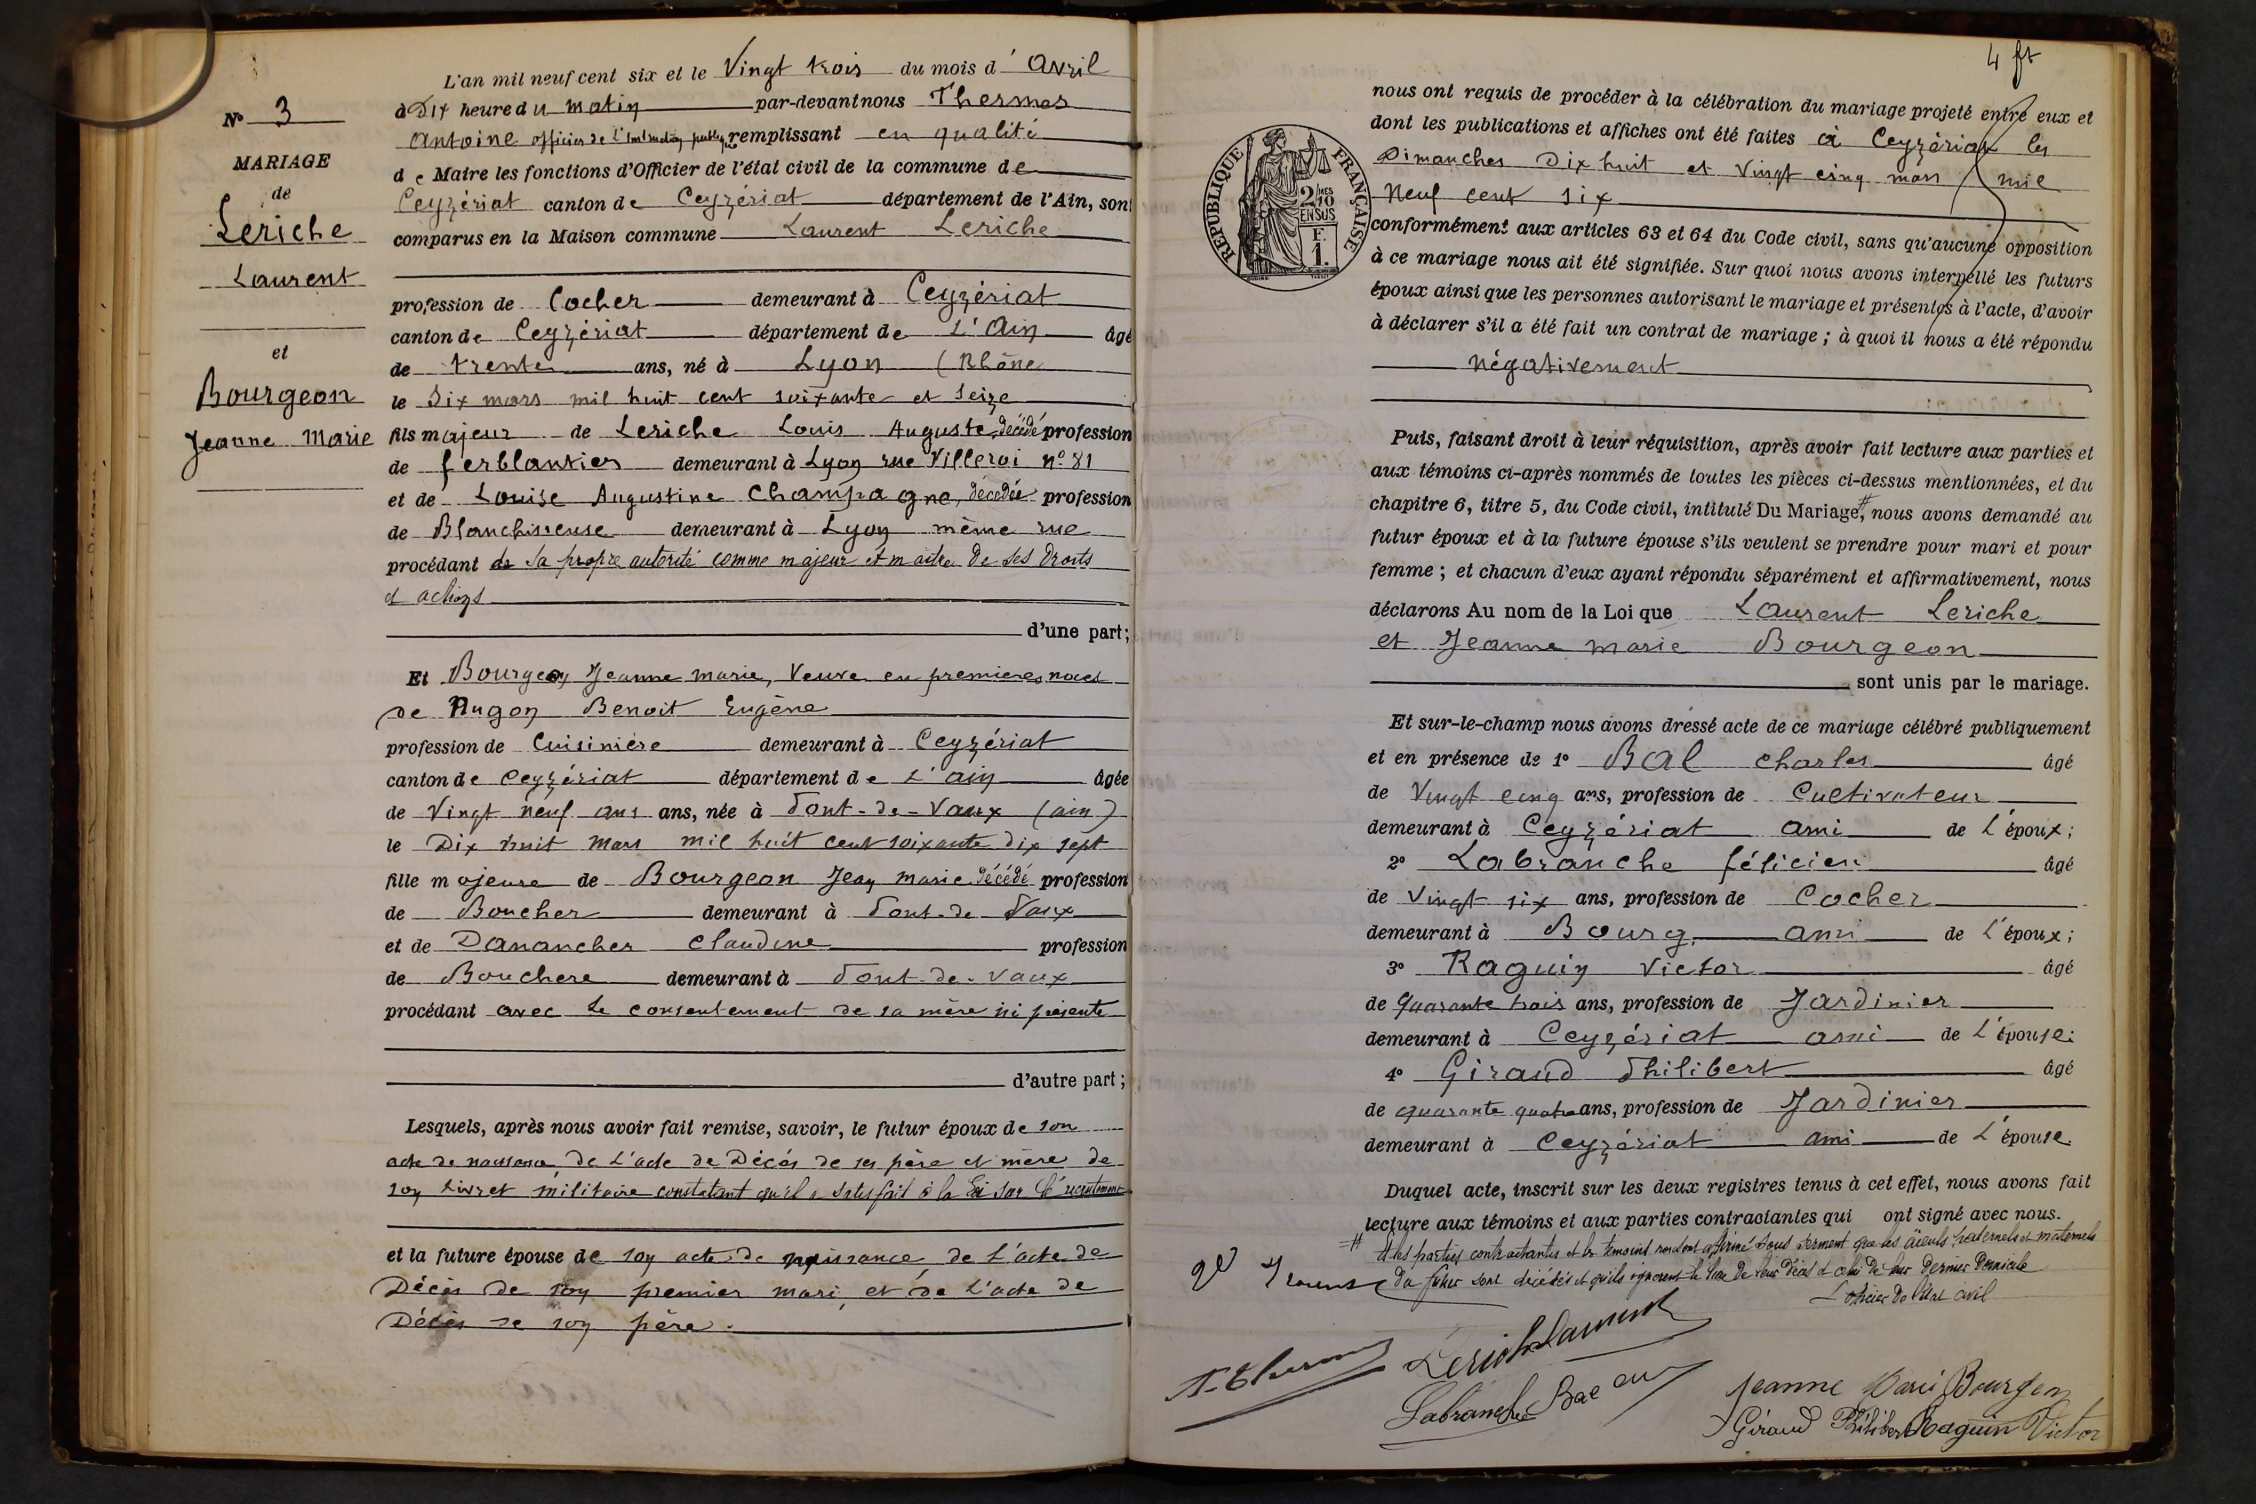 L'an mil neuf cent six et le Vingt trois du mois d'Avril
N° 3
à Dix heure du matin par-devant nous Thermes
Antoine officier de l'instruction publique remplissant en qualité
MARIAGE
de Maire les fonctions d'Officier de l'état civil de la commune de
de
Ceyzériat canton de Ceyzériat département de l'Ain, sont
Leriche
comparus en la Maison commune Laurent Leriche
Laurent
profession de Cocher demeurant à Ceyzériat
canton de Ceyzériat département de L'Ain âgé
et
de trente ans, né à Lyon (Rhône
Bourgeon
le Six mars mil huit cent soixante et seize
Jeanne Marie
fils majeur de Leriche Louis Auguste décédé profession
de ferblantier demeurant à Lyon rue Villeroi n° 81
et de Louise Augustine Champagne, décédée profession
de Blanchisseuse demeurant à Lyon même rue
procédant de sa propre autorité comme majeur et maitre de ses droits
et actions
d'une part;
Et Bourgeon Jeanne marie, Veuve en premieres noces
de Augon Benoit Eugène
profession de Cuisinière demeurant à Ceyzériat
canton de Ceyzériat département de L'ain âgée
de Vingt neuf ans ans, née à Pont-de-Vaux (ain)
le Dix huit Mars mil huit cent soixante dix sept
fille majeure de Bourgeon Jean marie décédé profession
de Boucher demeurant à Pont-de Vaux
et de Danancher Claudine profession
de Bouchere demeurant à Pont-de-Vaux
procédant avec le consentement de sa mère ici présente
d'autre part;
Lesquels, après nous avoir fait remise, savoir, le futur époux de son
acte de naissance de L'acte de Décés de ses père et mère de
son Livret militaire constatant qu'il a satisfait à la loi sur le recrutement
et la future épouse de son acte de naissance, de L'acte de
Décès de son premier mari, et de L'acte de
Décès de son père.
4 ft
nous ont requis de procéder à la célébration du mariage projeté entre eux et
dont les publications et affiches ont été faites à Ceyzériat les
Dimanches Dix huit et Vingt cinq mars mil
Neuf cent six
REPUBLIQUE FRANÇAISE
2/10 MES
EN SUS
F.
1.
conformément aux articles 63 et 64 du Code civil, sans qu'aucune opposition
à ce mariage nous ait été signifiée. Sur quoi nous avons interpellé les futurs
époux ainsi que les personnes autorisant le mariage et présentes à l'acte, d'avoir
à déclarer s'il a été fait un contrat de mariage; à quoi il nous a été répondu
négativement
Puis, faisant droit à leur réquisition, après avoir fait lecture aux parties et
aux témoins ci-après nommés de toutes les pièces ci-dessus mentionnées, et du
chapitre 6, titre 5, du Code civil, intitulé Du Mariage,# nous avons demandé au
futur époux et à la future épouse s'ils veulent se prendre pour mari et pour
femme; et chacun d'eux ayant répondu séparément et affirmativement, nous
déclarons Au nom de la Loi que Laurent Leriche
et Jeanne marie Bourgeon
sont unis par le mariage.
Et sur-le-champ nous avons dressé acte de ce mariage célébré publiquement
et en présence de 1° Bal Charles âgé
de Vingt cinq ans, profession de Cultivateur
demeurant à Ceyzériat ami de L'époux;
2° Labranche félicien âgé
de Vingt six ans, profession de Cocher
demeurant à Bourg, ami de L'époux;
3° Raguin Victor âgé
de Quarante trois ans, profession de Jardinier
demeurant à Ceyzériat ami de L'épouse;
4° Giraud Philibert âgé
de quarante quatre ans, profession de Jardinier
demeurant à Ceyzériat ami de L'épouse.
Duquel acte, inscrit sur les deux registres tenus à cet effet, nous avons fait
lecture aux témoins et aux parties contractantes qui ont signé avec nous.
# et les parties contractantes et les temoins ont affirmé sous serment que les aïeuls paternels et maternels
du futur sont décédés et qu'ils ignorent le lieu de leur décès et celui de leur dernier domicile
L'officier de l'état civil
Leriche Laurent
Labranche Bal
Jeanne Marie Bourgeon
Giraud Philibert Raguin Victor